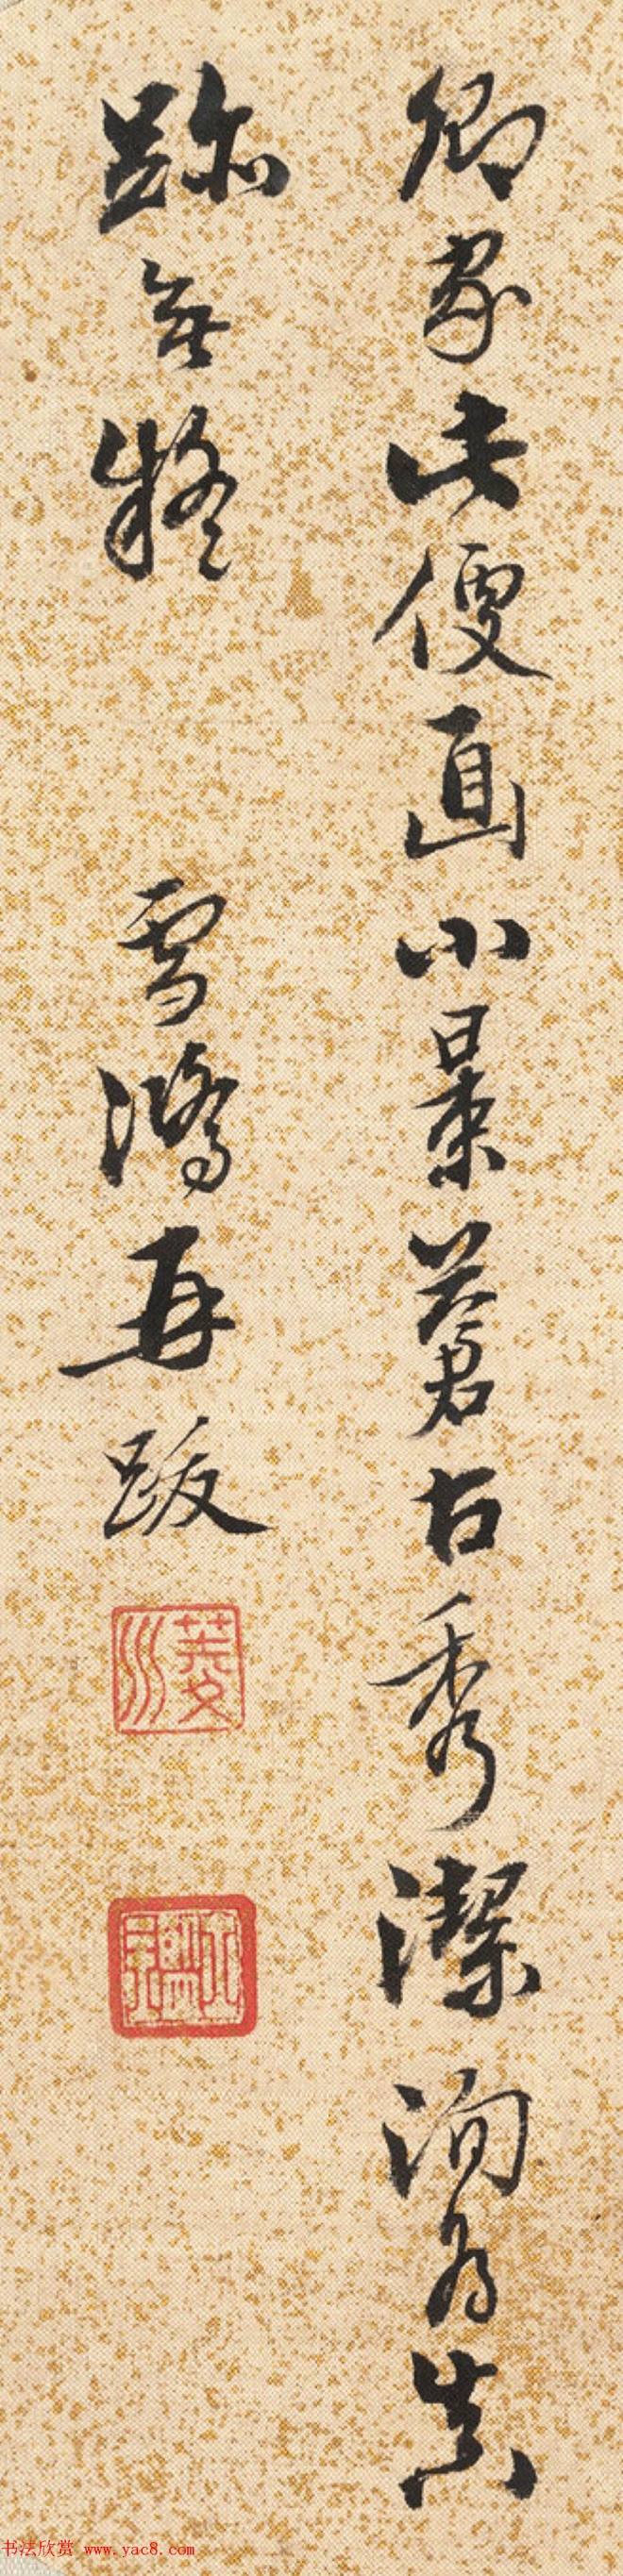 卿家此便画小景蒼古秀潔洵为真
跡无疑
雪鴻再跋
书法欣赏 www.yac8.com